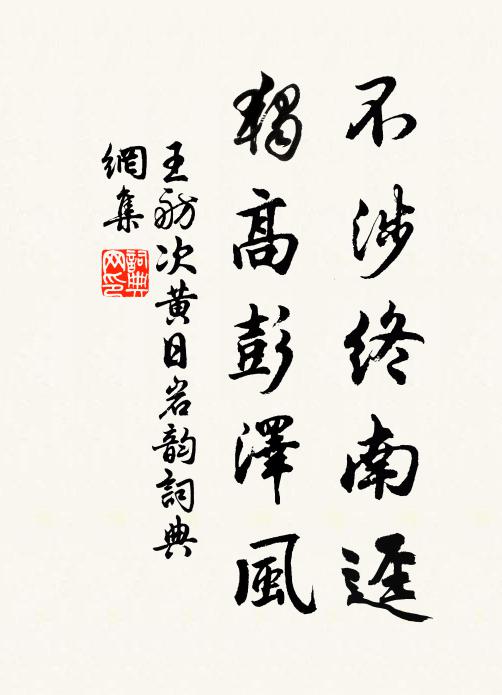 不涉終南逕
獨高彭澤風
王舫次黃日岩韵詞典
網集
詞典
网印